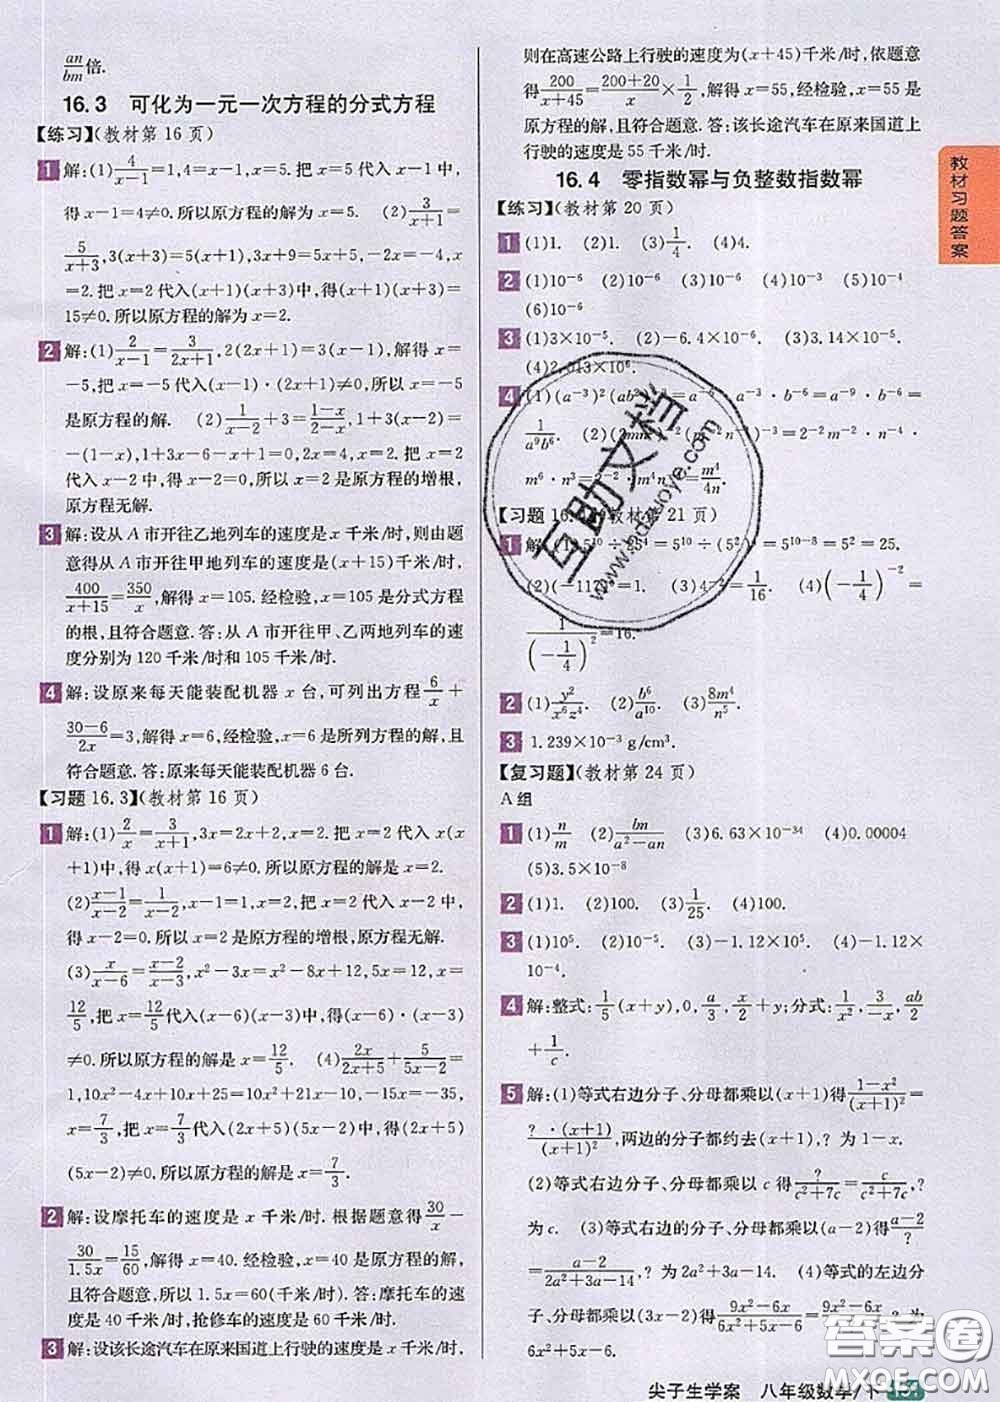 an/bm倍.
16.3 可化为一元一次方程的分式方程
【练习】(教材第 16 页)
1 解:(1)4/(x−1)=1,4=x−1,x=5.把 x=5代入 x−1中,
得 x−1=4≠0.所以原方程的解为 x=5. (2)3/(x+1)=
5/(x+3),3(x+3)=5(x+1),3x+9=5x+5,−2x=−4,x
=2.把 x=2代入(x+1)(x+3)中,得(x+1)(x+3)=
15≠0.所以原方程的解为 x=2.
2 解:(1)2/(x−1)=3/(2x+1),2(2x+1)=3(x−1),解得 x=
−5,把 x=−5代入(x−1)·(2x+1)≠0,所以 x=−5
是原方程的解. (2)1/(x−2)+3=(1−x)/(2−x),1+3(x−2)=
−(1−x),1+3x−6−x+1=0,2x−4=0,x=2.把 x=2
代入 x−2 中,得 x−2=0.所以 x=2 是原方程的增根,
原方程无解.
3 解:设从 A 市开往乙地列车的速度是 x 千米/时,则由题
意得从 A 市开往甲地列车的速度是(x+15)千米/时,
400/(x+15)=350/x,解得 x=105.经检验,x=105 是分式方程
的根,且符合题意.答:从 A 市开往甲、乙两地列车的速
度分别为 120 千米/时和 105 千米/时.
4 解:设原来每天能装配机器 x 台,可列出方程 6/x +
(30−6)/2x=3,解得 x=6,经检验,x=6 是所列方程的解,且
符合题意.答:原来每天能装配机器 6 台.
【习题 16.3】(教材第 16 页)
1 解:(1)2/x=3/(x+1),3x=2x+2,x=2.把 x=2代入 x(x
+1)中,得 x(x+1)=6≠0.所以原方程的解是 x=2.
(2)(x−1)/(x−2)=1/(x−2),x−1=1,x=2.把 x=2代入 x−2中,
得 x−2=0.所以 x=2 是原方程的增根,原方程无解.
(3)x/(x−6)=(x−2)/(x−3),x²−3x=x²−8x+12,5x=12,x=
12/5,把 x=12/5代入(x−6)(x−3)中,得(x−6)(x−3)
≠0.所以原方程的解为 x=12/5. (4)2x/(2x+5)+5/(5x−2)=
1,10x²−4x+10x+25=10x²+21x−10,−15x=−35,
x=7/3,把 x=7/3代入(2x+5)(5x−2)中,得(2x+5)
(5x−2)≠0.所以原方程的解是 x=7/3.
2 解:设摩托车的速度是 x 千米/时.根据题意得 30/x −
30/1.5x=15/60,解得 x=40.经检验,x=40 是原方程的解,
且符合题意,所以 1.5x=60(千米/时).答:摩托车的速
度是 40 千米/时,抢修车的速度是 60 千米/时.
3 解:设该长途汽车在原来国道上行驶的速度是 x 千米/时,
则在高速公路上行驶的速度为(x+45)千米/时,依题意
得 200/(x+45)=(200+20)/x×1/2,解得 x=55,经检验,x=55 是
原方程的解,且符合题意.答:该长途汽车在原来国道上
行驶的速度是 55 千米/时.
16.4 零指数幂与负整数指数幂
【练习】(教材第 20 页)
1 (1)1. (2)1. (3)1/4. (4)4.
2 (1)10⁻⁶ (2)10⁻⁶ (3)10⁻⁶ (4)10⁻⁶ (5)10⁻⁴
(6)10⁻⁶
3 (1)3×10⁻⁵. (2)−6.4×10⁻⁶. (3)3.14×10⁻⁵.
(4)2.013×10⁶.
4 (1)(a⁻³)²(ab²)⁻³=a⁻⁶·a⁻³·b⁻⁶=a⁻⁹·b⁻⁶=
1/a⁹b⁶. (2)(2mn²)⁻²·n⁻²=2⁻²m⁻²·n⁻⁴·
m⁶·n³=2⁻²·m⁴n⁻¹=m⁴/4n.
【习题 16.4】(教材第 21 页)
1 解:(1)5¹⁰÷5⁴=5¹⁰÷(5²)⁴=5¹⁰⁻⁸=5²=25.
(2)(−117)⁰=1. (3)4⁻²=1/16. (4)(−1/4)⁻²=
1/(−1/4)²=16.
2 (1)y²/x⁶z⁴. (2)b⁶/a¹⁰. (3)8m⁴/n⁵.
3 1.239×10⁻³ g/cm³.
【复习题】(教材第 24 页)
A 组
1 (1)n/m (2)bn/(a²−an) (3)6.63×10⁻³⁴ (4)0.00004
(5)3.5×10⁻⁸
2 (1)1. (2)100. (3)1/25. (4)100.
3 (1)10⁵. (2)10⁻⁵. (3)−1.12×10⁵. (4)−1.12×
10⁻⁴.
4 解:整式:1/5(x+y),0,a/3,x/π+y;分式:1/x²,3/−x,ab/2
+1/c.
5 解:(1)等式右边分子、分母都乘以(x+1)得(1−x²)/(x+1)²=
?·(x+1)/(x+1)²,两边的分子都约去(x+1),? 为 1−x.
(2)等式右边分子、分母都乘以 c 得?/(c²+7c)=c/(c²+7c),?
为 c. (3)等式右边的分子、分母都乘以(a−2)得(a−2)/?
=(a−2)/(2a²+3a−14),? 为 2a²+3a−14. (4)等式的左边分
子、分母都乘以(3x−2)得(9x²−6x)/(6x²+5x−6)=(9x²−6x)/
(6x²+5x−6).
教材习题答案
互助文档
www.hdzuoye.com
答案卷
MXQE.COM
尖子生学案 八年级数学/下 151